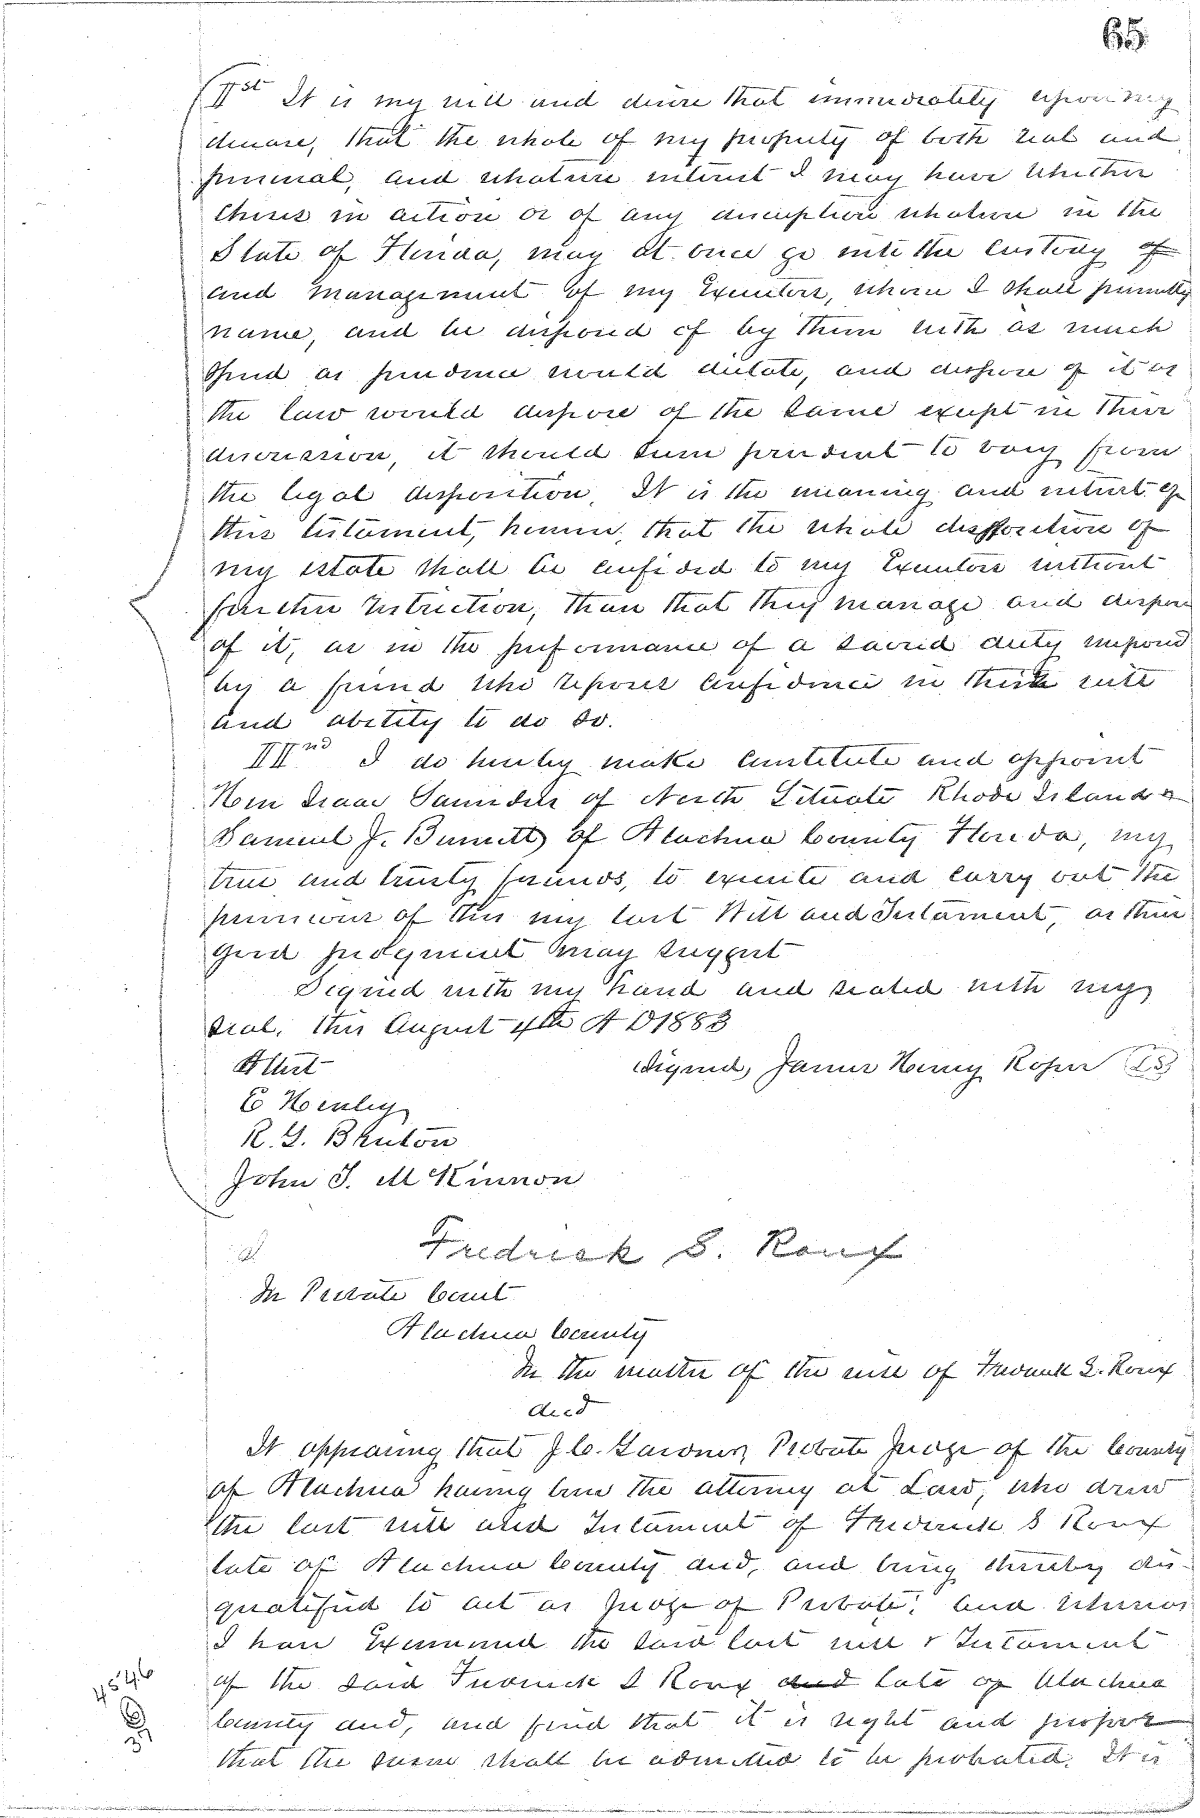 65
IIst It is my will and desire that immediately upon my
decease, that the whole of my property of both real and
personal, and whatever interest I may have whether
choses in action or of any description whatever in the
State of Florida, may at once go into the custody of
and management of my Executors, whom I shall presently
name, and be disposed of by them with as much
speed as prudence would dictate, and dispose of it as
the law would dispose of the same except in their
discression, it should seem prudent to vary from
the legal disposition. It is the meaning and intent of
this testament, however, that the whole disposition of
my estate shall be confided to my Executors without
further restriction, than that they manage and dispose
of it, as in the performance of a sacred duty imposed
by a friend who reposes confidence in their will
and ability to do so.
IIInd I do hereby make constitute and appoint
Hon Isaac Saunders of North Scituate Rhode Island &
Samuel J. Burnett of Alachua County Florida, my
true and trusty friends, to execute and carry out the
provisions of this my last Will and Testament, as their
good judgment may suggest
Signed with my hand and sealed with my
seal, this August 4th A D 1883
Attest
signed, James Henry Roper LS
E Henley
R. G. Bruton
John T. McKinnon
Fredrick S. Roux
In Probate Court
Alachua County
In the matter of the will of Frederick S. Roux
decd
It appearing that J. C. Gardner, Probate Judge of the County
of Alachua having been the attorney at Law, who drew
the last will and Testament of Frederick S Roux
late of Alachua County decd, and being thereby dis-
qualified to act as Judge of Probate, and whereas
I have Examined the said last will & Testament
of the said Frederick S Roux decd late of Alachua
County decd, and find that it is right and proper
that the same shall be admitted to be probated. It is
4546